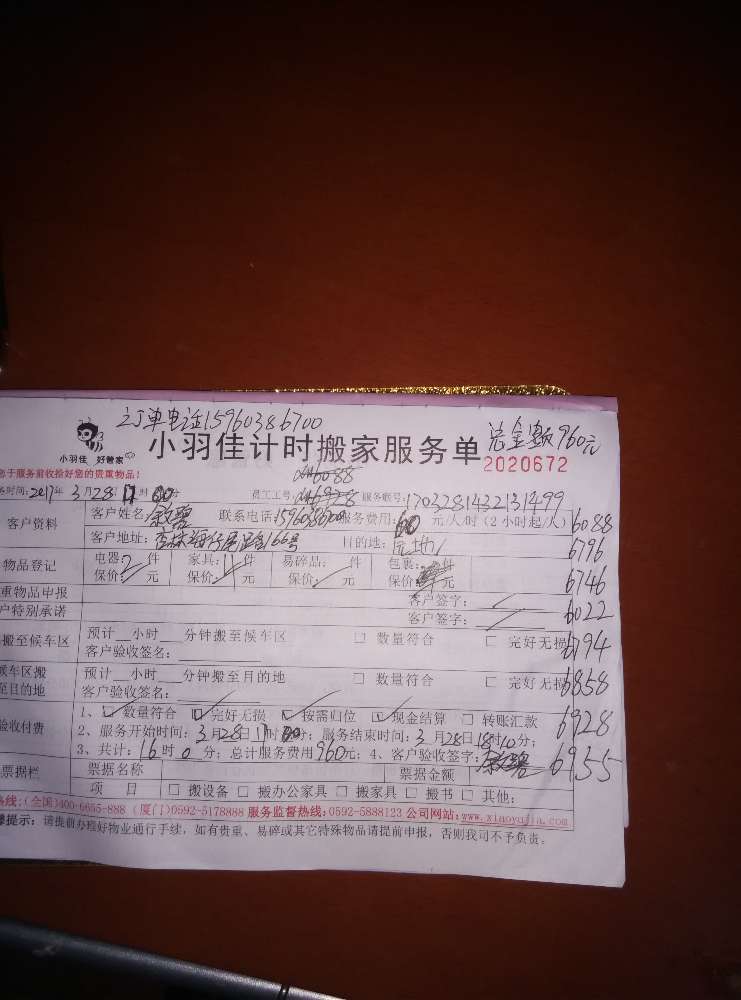 订单电话15960386700
总金额960元
小羽佳 好管家
小羽佳计时搬家服务单
2020672
于服务前收拾好您的贵重物品!
6088
务时间:2017年3月28日17时00分 员工工号: 6928 服务联号:1703281432131499
客户资料 客户姓名: 联系电话:15960386700 服务费用:60元/人/时(2小时起/人) 6088
客户地址: 166号 目的地: 6796
物品登记 电器:2件 家具:件 易碎品:件 包裹:件
保价:元 保价:元 保价:元 保价:元 6746
重物品申报 客户签字:
户特别承诺 客户签字: 6022
搬至候车区 预计__小时___分钟搬至候车区 □ 数量符合 □ 完好无损 6794
客户验收签名:
候车区搬至目的地 预计__小时___分钟搬至目的地 □ 数量符合 □ 完好无损 6858
客户验收签名:
验收付费 1、☑数量符合 ☑完好无损 ☑按需归位 ☑现金结算 □ 转账汇款 6928
2、服务开始时间:3月28日17时00分; 服务结束时间:3月28日18时10分;
3、共计:16时0分; 总计服务费用960元; 4、客户验收签字: 6955
票据栏 票据名称 票据金额
项 目 □ 搬设备 □ 搬办公家具 □ 搬家具 □ 搬书 □ 其他:
热线:(全国)400-6655-888 (厦门)0592-5178888 服务监督热线:0592-5888123 公司网站:www.xiaoyujia.com
提示:请提前办理好物业通行手续,如有贵重、易碎或其它特殊物品请提前申报,否则我司不予负责。